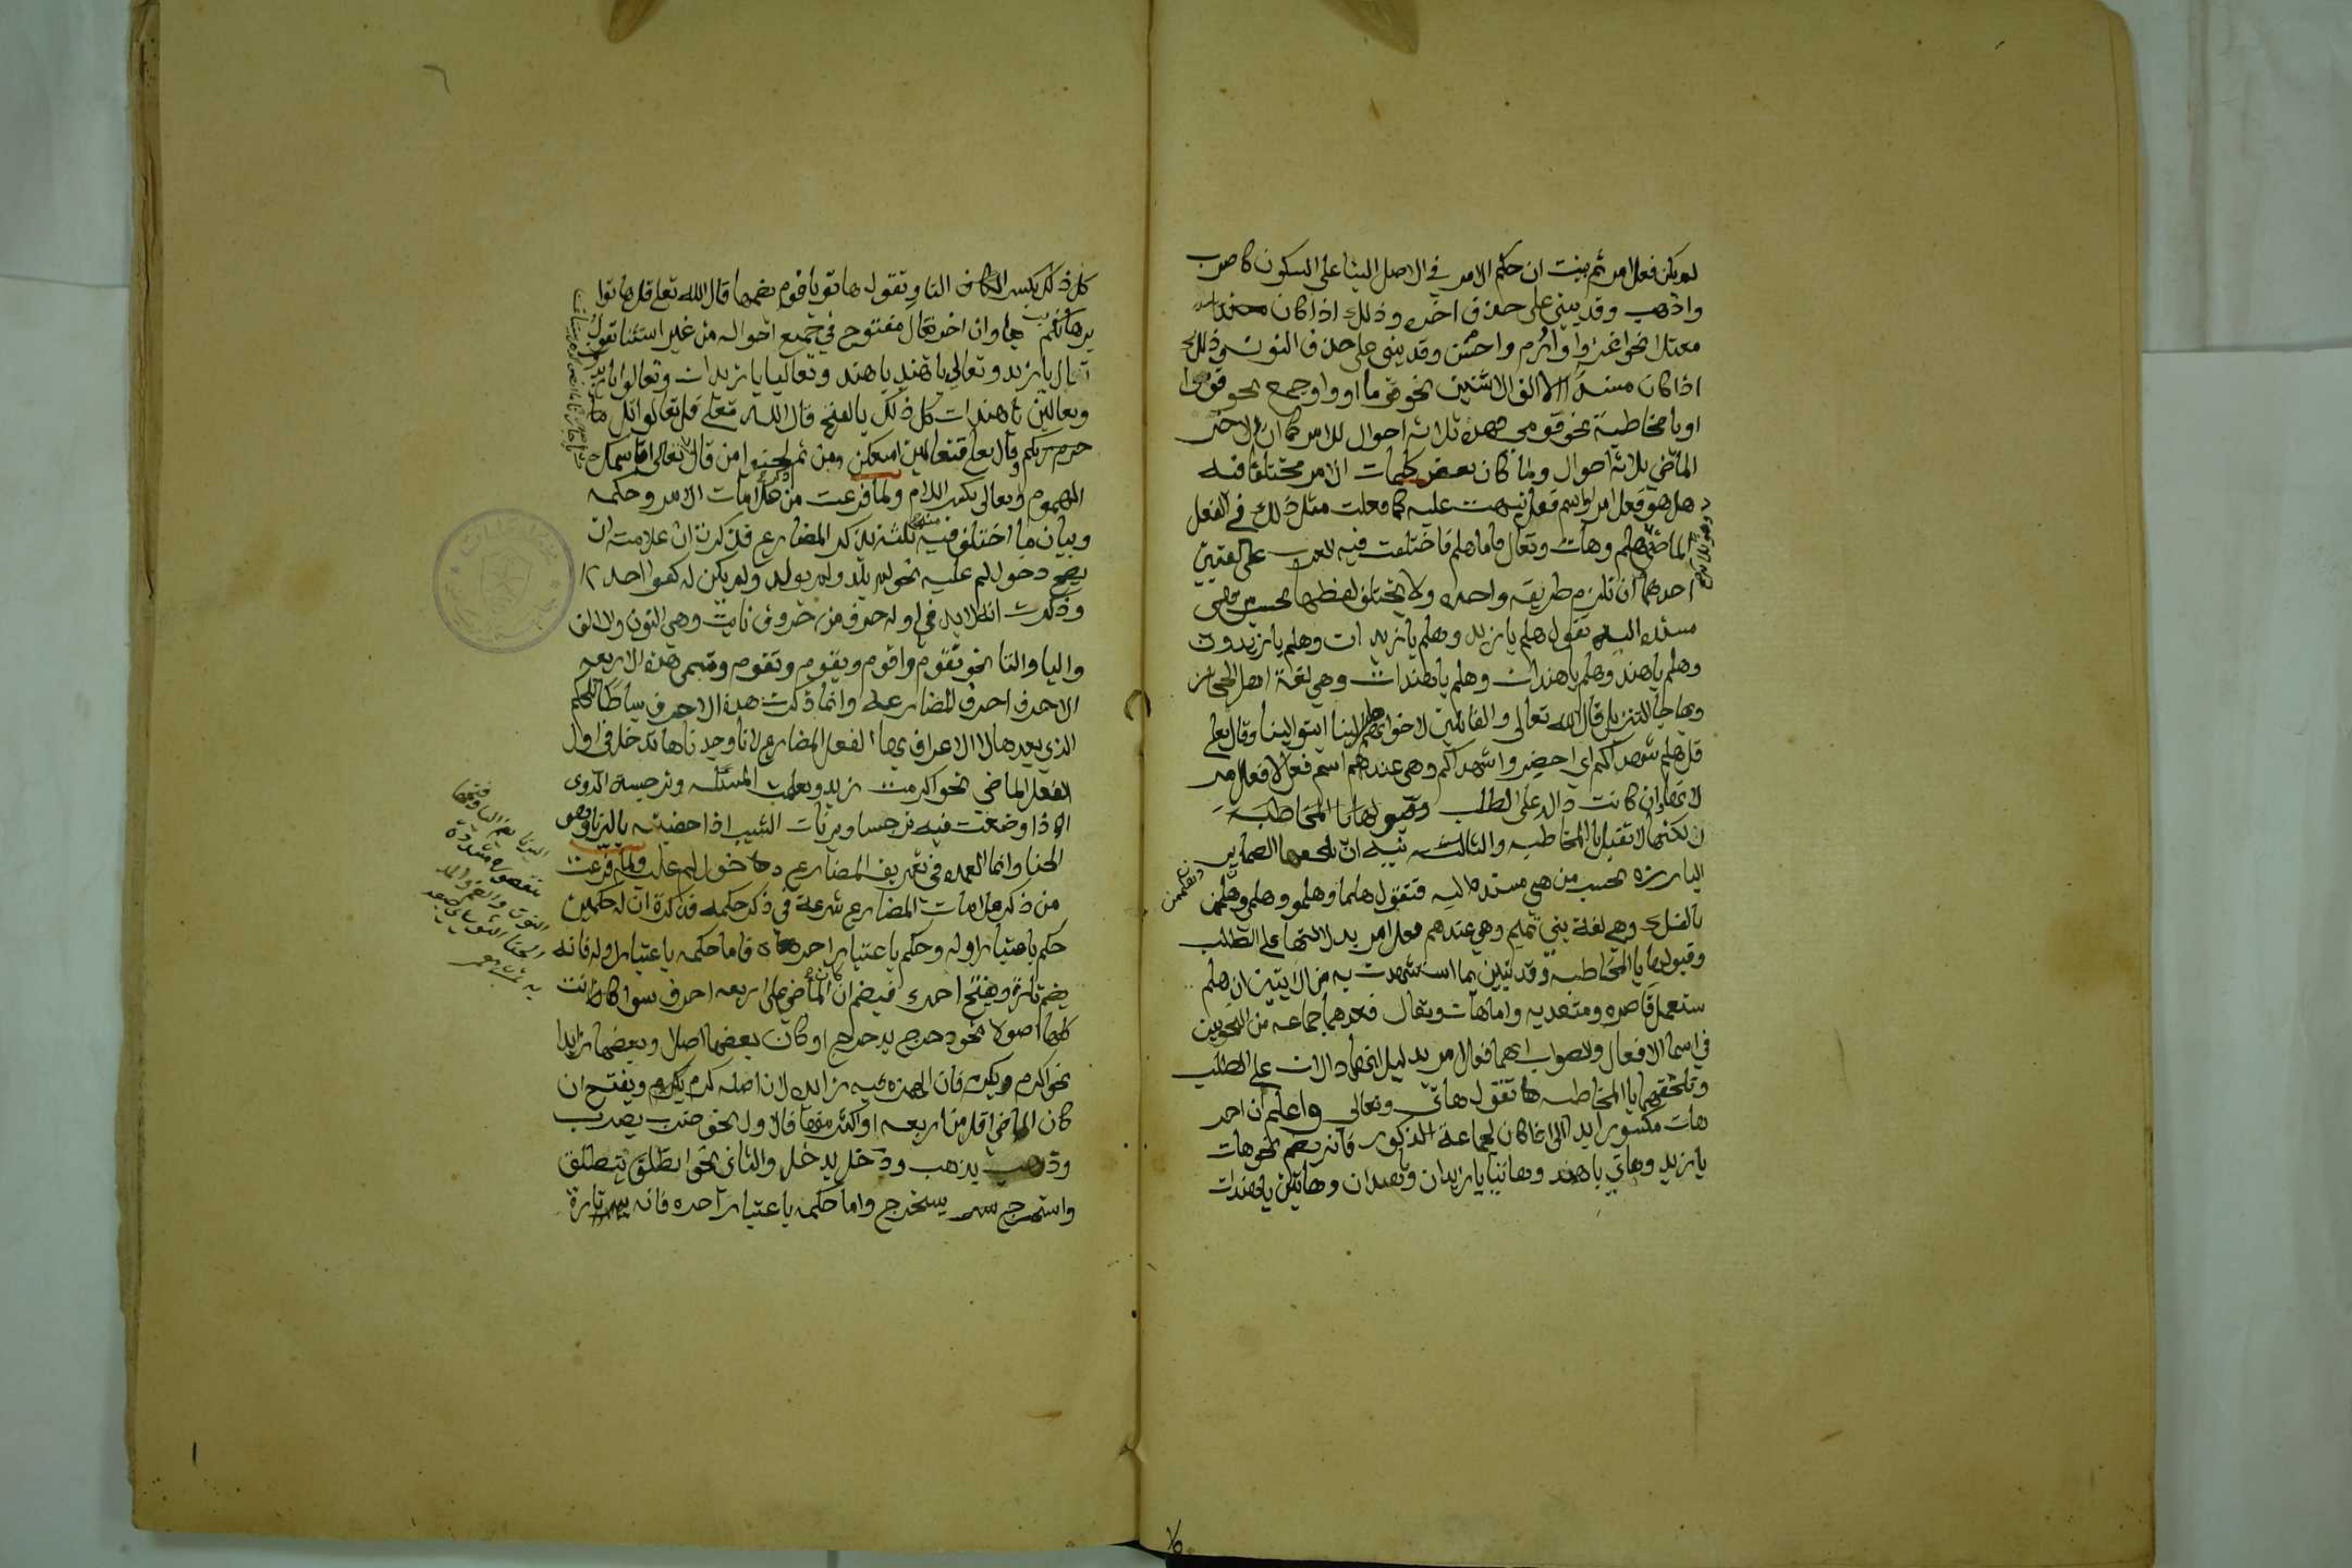 لم يكن فعل امر ثم بينت ان حكم الامر في الاصل البنا على السكون كاضرب
واذهب وقد يبنى على حذف اخره وذلك اذا كان
معتلا نحو اغز وارم واخش وقد يبنى على حذف النون وذلك
اذا كان مسندا لالف الاثنين نحو قوما او واو جمع نحو قوموا
او يا مخاطبة نحو قومي فهذه ثلاثة احوال للامر كما ان لاخر
الماضي ثلاثة احوال ولما كان بعض كلمات الامر مختلفا فيه
هل هو فعل امر او اسم فعل نبهت عليه كما فعلت مثل ذلك في الفعل
الماضي وهي هلم وهات وتعال فاما هلم فاختلفت فيه العرب على لغتين
احدهما ان تلزم طريقه واحده ولا يختلف لفظها بحسب من هي
مسنده اليه تقول هلم يا زيد وهلم يا زيدان وهلم يا زيدون
وهلم يا هند وهلم يا هندان وهلم يا هندات وهي لغة اهل الحجاز
وبها جا التنزيل قال الله تعالى والقائلين لاخوانهم هلم الينا اي ايتوا الينا وقال تعلى
قل هلم شهداكم اي احضروا شهداكم وهي عندهم اسم فعل لا فعل امر
لانها وان كانت دالة على الطلب
لكنها لا تقبل يا المخاطبه والثانيه ان تلحقها الضماير
البارزه بحسب من هي مسنده اليه فتقول هلما وهلموا وهلمي وهلممن
بالفك وهي لغة بني تميم وهي عندهم فعل امر بدلالتها على الطلب
وقبولها يا المخاطبه وقد تبين بما استشهدت به من الايتين ان هلم
ستعمل قاصره ومتعديه واما هات وتعال فعدهما جماعه من النحويين
في اسما الافعال والصواب انهما فعلا امر بدليل انهما دالان على الطلب
وتلحقهما يا المخاطبه تقول هاتي وتعالي واعلم ان اخر
هات مكسور ابدا الا اذا كان لجماعة الذكور فانه يضم نحو هات
يا زيد وهاتي يا هند وهاتيا يا زيدان وهندان وهاتين يا هندات
كل ذلك بكسر التا وتقول هاتوا يا قوم بضمها قال الله تعلى قل هاتوا
برهانكم وان اخر تعال مفتوح في جميع احواله من غير استثنا تقول
تعال يا زيد وتعالي يا هند وتعاليا يا زيدان وتعالوا يا زيدون
وتعالين يا هندات كل ذلك بالفتح قال الله تعلى قل تعالوا اتل ما
حرم ربكم وقال تعلى فتعالين امتعكن ومن ثم لحنوا من قال تعالي اقاسمك
الهموم وتعالي بكسر اللام ولما فرغت من ذكر علامات الامر وحكمه
وبيان ما اختلف فيه منه ثلثت بذكر المضارع فذكرت ان علامته ان
يصح دخول لم عليه نحو لم يلد ولم يولد ولم يكن له كفوا احد
وذكرت انه لا بد في اوله حرف من حروف نايت وهي النون والالف
واليا والتا نحو نقوم واقوم ويقوم وتقوم وتسمى هذه الاربعه
الاحرف احرف المضارعه وانما ذكرت هذه الاحرف بساطا للحكم
الذي بعدها لا لاعرف بها الفعل المضارع لانا وجدناها تدخل في اول
الفعل الماضي نحو اكرمت زيدا وتعلمت المسئله ونرجست الدوى
اذا وضعت فيه نرجسا ويرنات الشيب اذا خضبته باليرنا وهو
الحنا وانما العمده في تعريف المضارع دخول لم عليه ولما فرغت
من ذكر علامات المضارع شرعت في ذكر حكمه فذكرت ان له حكمين
حكم باعتبار اوله وحكم باعتبار اخره فاما حكمه باعتبار اوله فانه
يضم تارة ويفتح اخرى فيضم ان كان الماضي على اربعه احرف سوا كانت
كلها اصولا نحو دحرج يدحرج او كان بعضها اصلا وبعضها زايدا
نحو اكرم يكرم فان الهمزه فيه زايده لان اصله كرم يكرم ويفتح ان
كان الماضي اقل من اربعه او اكثر منها فالاول نحو ضرب يضرب
وذهب يذهب ودخل يدخل والثاني نحو انطلق ينطلق
واستخرج يستخرج واما حكمه باعتبار اخره فانه تارة